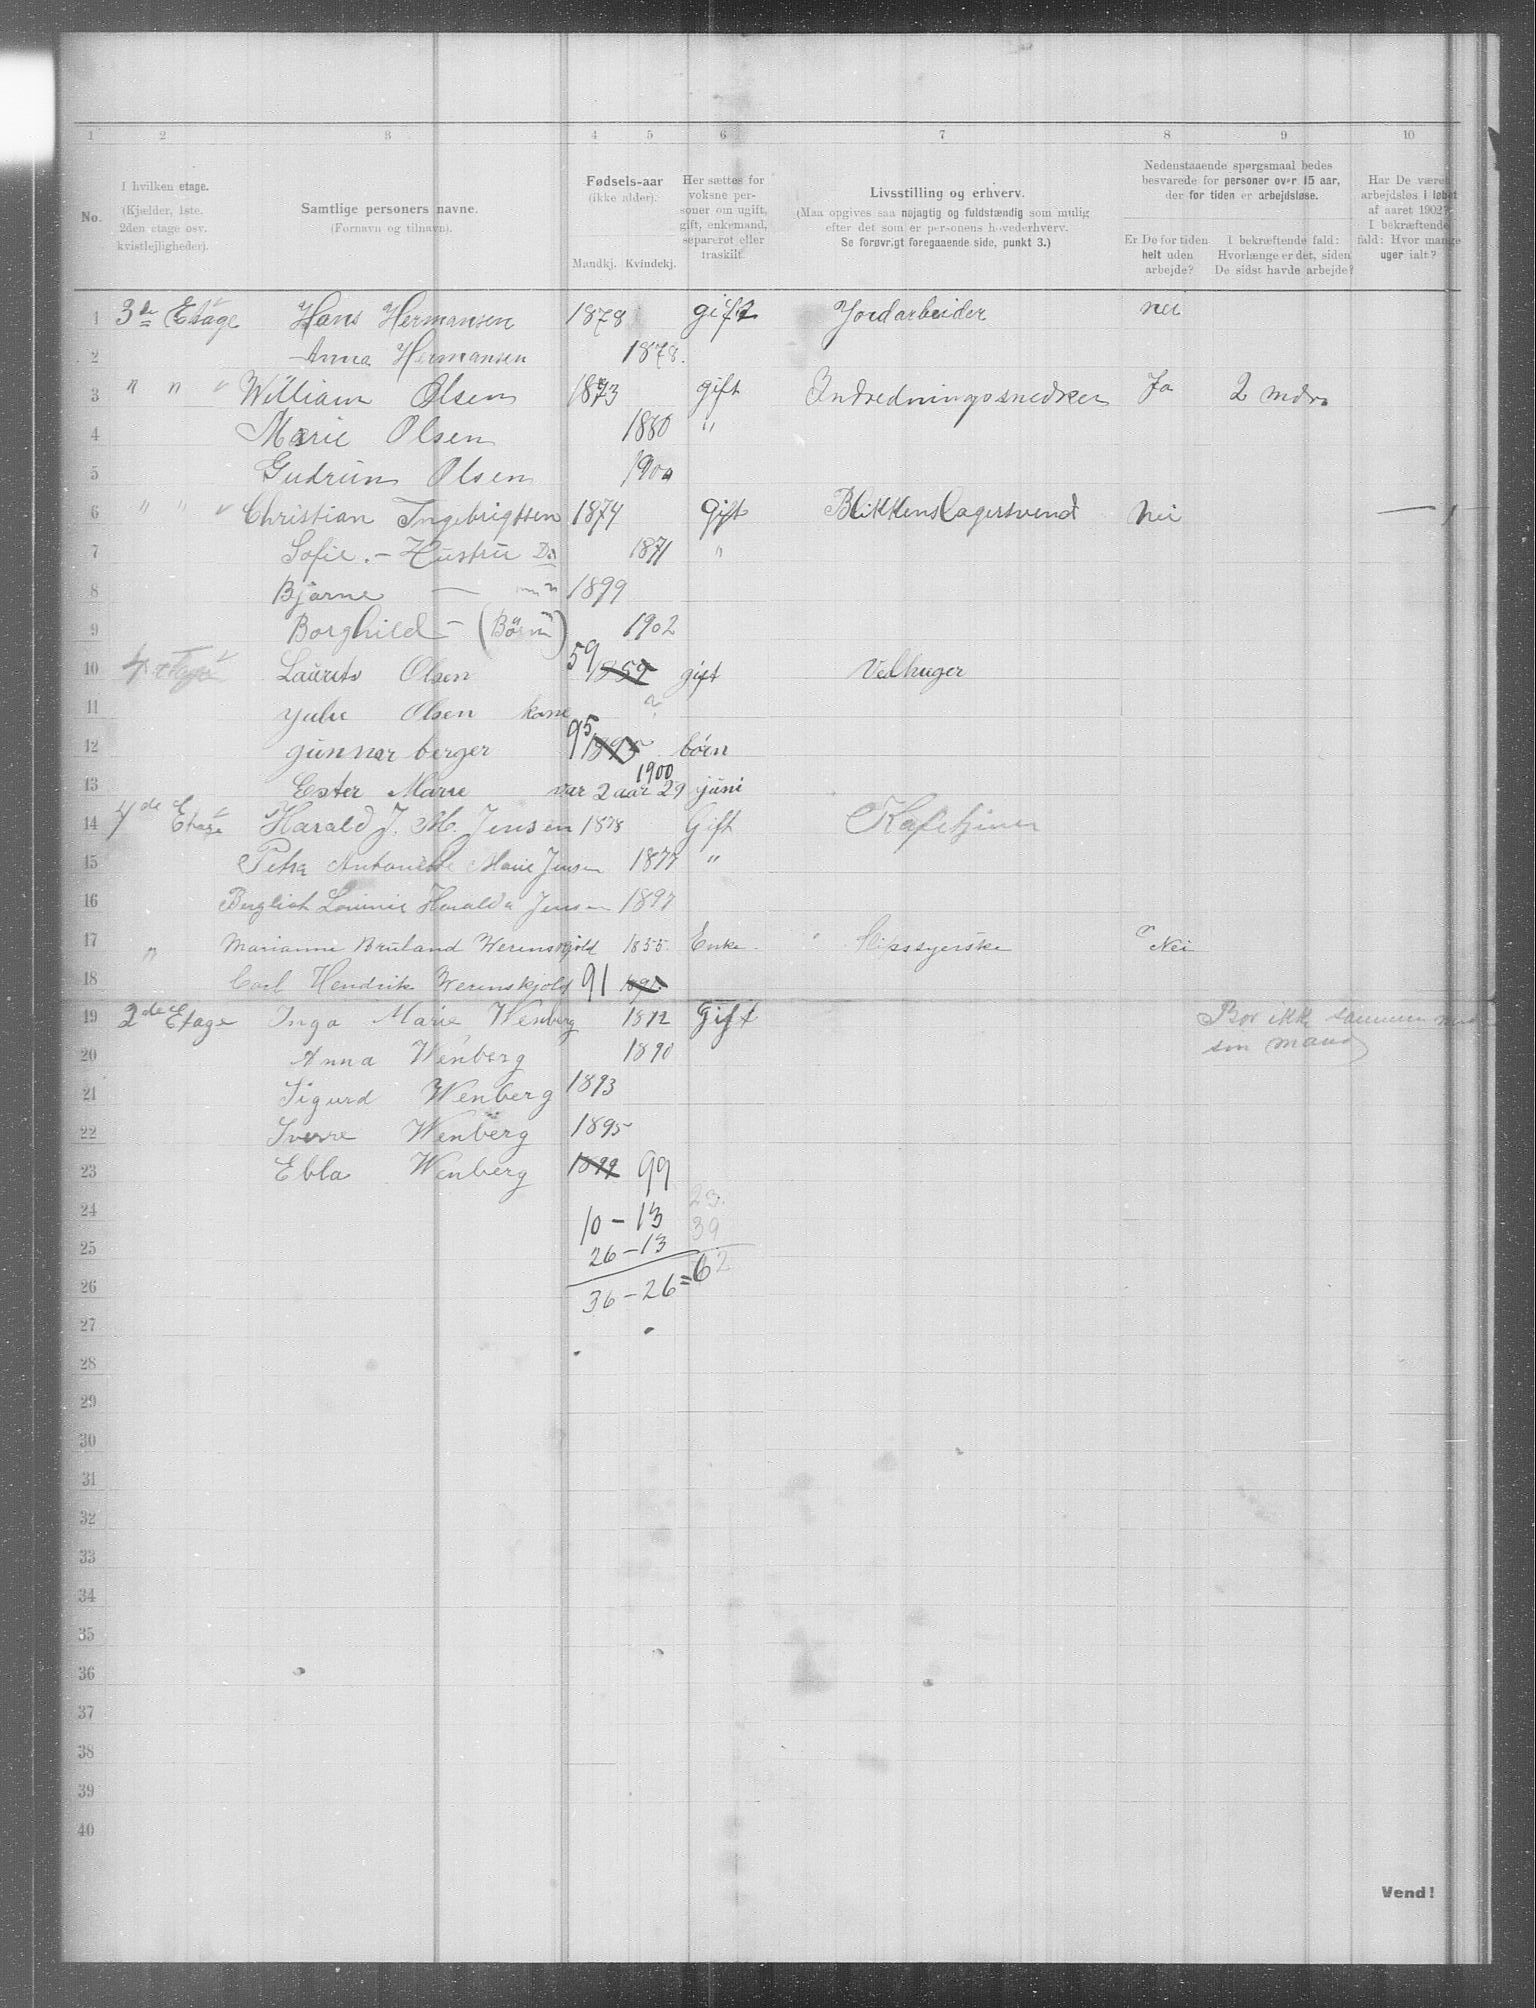 1 2 3 4 5 6 7 8 9 10
No.
I hvilken etage.
(Kjælder, 1ste.
2den etage osv.
kvistlejligheder).
Samtlige personers navne.
(Fornavn og tilnavn).
Fødsels-aar
(ikke alder).
Mandkj. Kvindekj.
Her sættes for
voksne per-
soner om ugift,
gift, enkemand,
separeret eller
fraskilt.
Livsstilling og erhverv.
(Maa opgives saa nøjagtig og fuldstændig som mulig
efter det som er personens hovederhverv.
Se forøvrigt foregaaende side, punkt 3.)
Nedenstaaende spørgsmaal bedes
besvarede for personer over 15 aar,
der for tiden er arbejdsløse.
Er De for tiden
helt uden
arbejde?
I bekræftende fald:
Hvorlænge er det, siden
De sidst havde arbejde?
Har De været
arbejdsløs i løbet
af aaret 1902?
I bekræftende
fald: Hvor mange
uger ialt?
1 3de Etage Hans Hermansen 1878 gift Jordarbeider nei
2 Anna Hermansen 1878.
3 " " " William Olsen 1873 gift Indredningssnedker Ja 2 mdr.
4 Marie Olsen 1880 "
5 Gudrun Olsen 1900
6 " " " Christian Ingebrigtsen 1874 Gift Blikkenslagersvend Nei —
7 Sofie. - Hustru Do 1871 "
8 Bjarne — " 1899
9 Borghild - (Børn) 1902
10 4 etage Laurits Olsen 59 1859 gift Vedhuger
11 Julie Olsen kone ?
12 gunnar berger 95 1895 børn
13 Ester Marie var 2 aar 29 juni 1900
14 4de Etage Harald J. M. Jensen 1878 Gift Kafetjener
15 Petra Antonette Marie Jensen 1877 "
16 Bergliot Haralda Jensen 1897
17 " Marianne Bruland Werenskjold 1855. Enke. " Slipssyerske Nei
18 Carl Hendrik Werenskjold 91 1891
19 2de Etage Inga Marie Wenberg 1872 Gift Bor ikke sammen med
sin mand
20 Anna Wenberg 1890
21 Sigurd Wenberg 1893
22 Sverre Wenberg 1895
23 Ebba Wenberg 1899 99
24 10 - 13 23.
25 26 - 13 39
26 36 - 26 = 62
27
28
29
30
31
32
33
34
35
36
37
38
39
40
Vend!